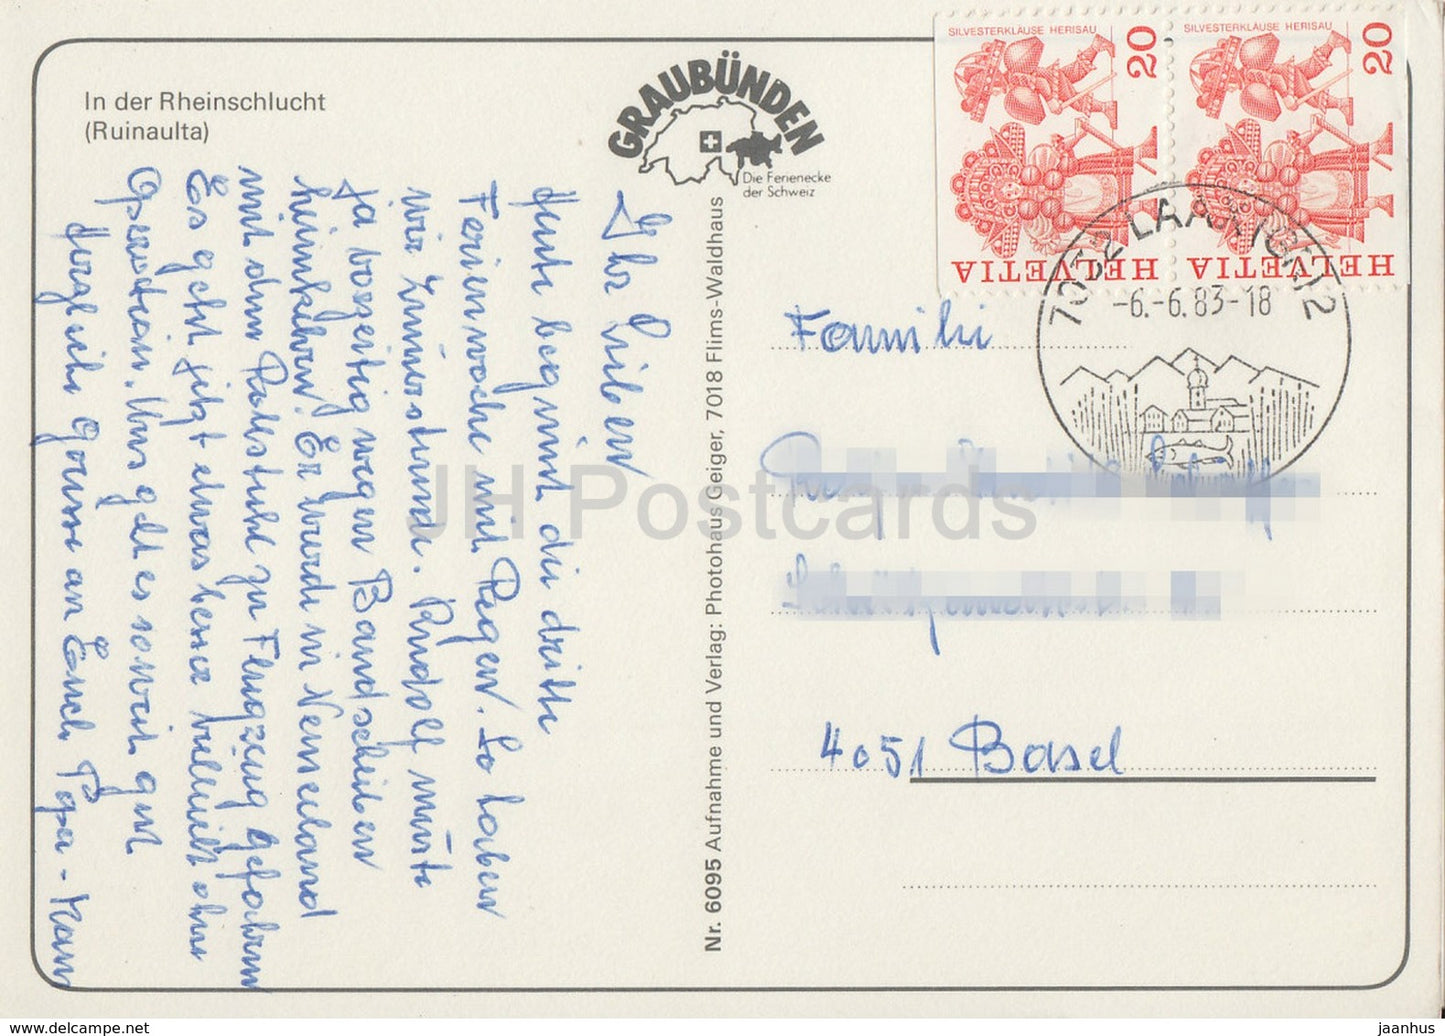 In der Rheinschlucht
(Ruinaulta)
GRAUBÜNDEN
Die Ferienecke
der Schweiz
SILVESTERKLÄUSE HERISAU
20
HELVETIA
SILVESTERKLÄUSE HERISAU
20
HELVETIA
-6.-6.83-18
Ihr Lieben
Heute beginnt die dritte
Ferienwoche mit Regen. So haben
wir Zimmerstunde. Rudolf mußte
ja vorzeitig wegen Bandscheiben
heimkehren. Er wurde in Neuseeland
mit dem Rollstuhl zu Flugzeug gefahren
Es geht jetzt etwas besser vielleicht ohne
Operation. Uns geht es soweit gut
Herzliche Grüsse an Euch Papa - Mam
Nr. 6095 Aufnahme und Verlag: Photohaus Geiger, 7018 Flims-Waldhaus
Familie
4051 Basel
JH Postcards
www.delcampe.net
jaanhus